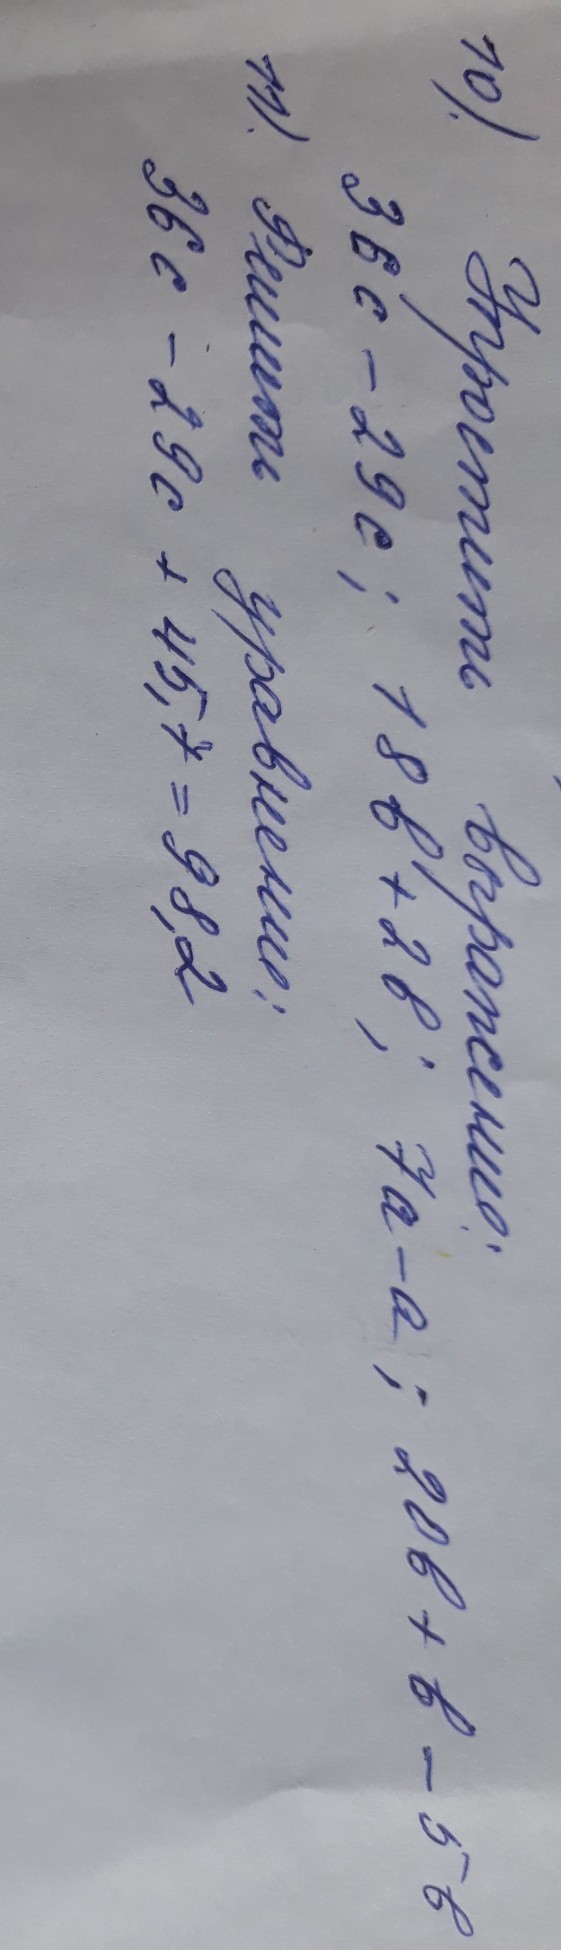 10). Упростить выражение:
36с - 29с; 18в + 2в; 7а - а; 20в + в - 5в
11). Решить уравнение:
36с - 29с + 45,7 = 98,2